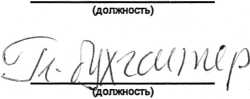 (должность)
Гл. бухгалтер
(должность)